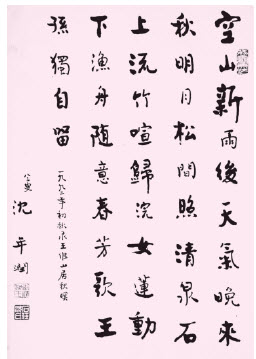 空山新雨後天氣晚來
秋明月松間照清泉石
上流竹喧歸浣女蓮動
下漁舟随意春芳歇王
孫獨自留
一九九年初秋录王维山居秋暝
沈年